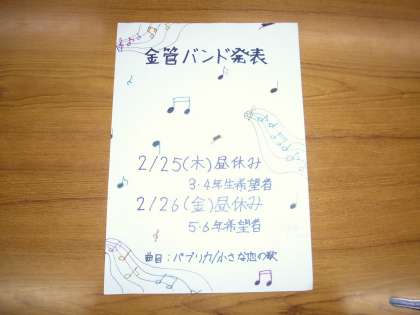 金管バンド発表
2/25(木)昼休み
3・4年生希望者
2/26(金)昼休み
5・6年希望者
曲目:パプリカ/小さな恋の歌